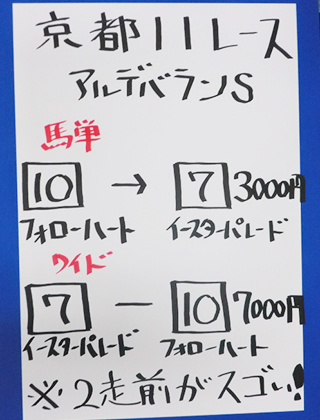 京都11レース
アルデバランS
馬単
10 → 7 3000円
フォローハート イースターパレード
ワイド
7 ― 10 7000円
イースターパレード フォローハート
※2走前がスゴい!